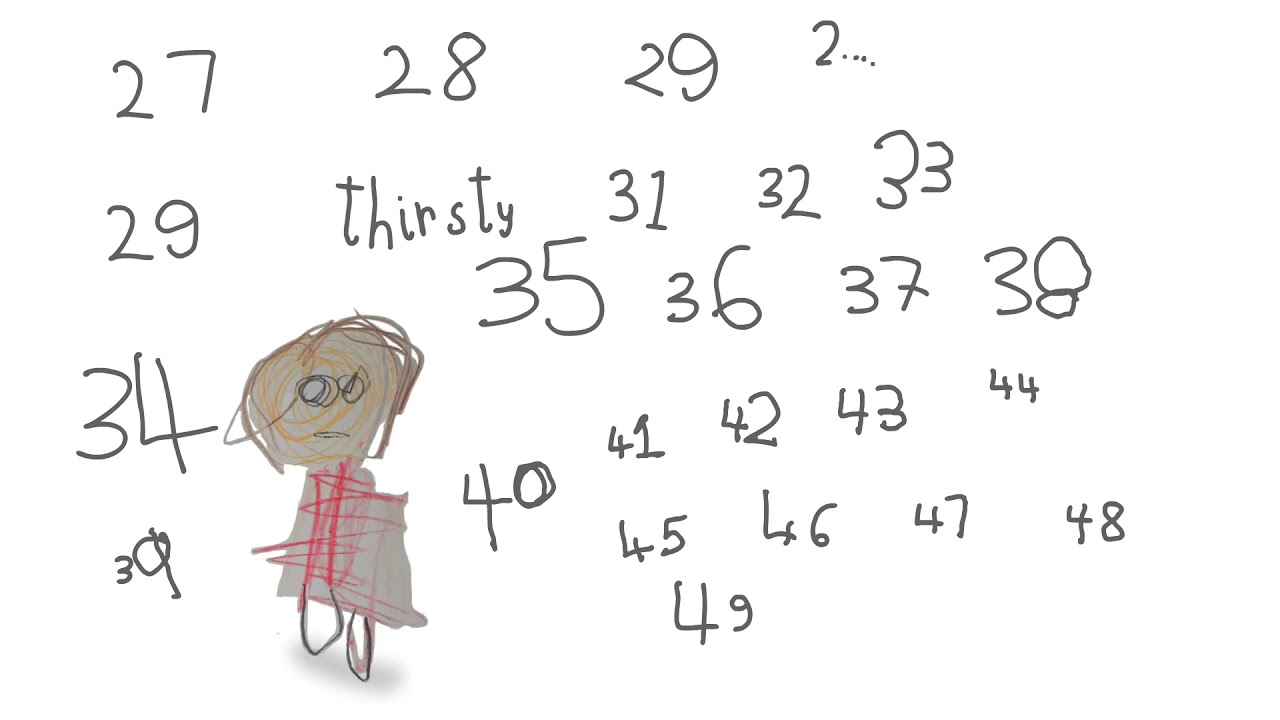 27 28 29 2....
29 thirsty 31 32 33
35 36 37 38
34
41 42 43 44
40
39 45 46 47 48
49